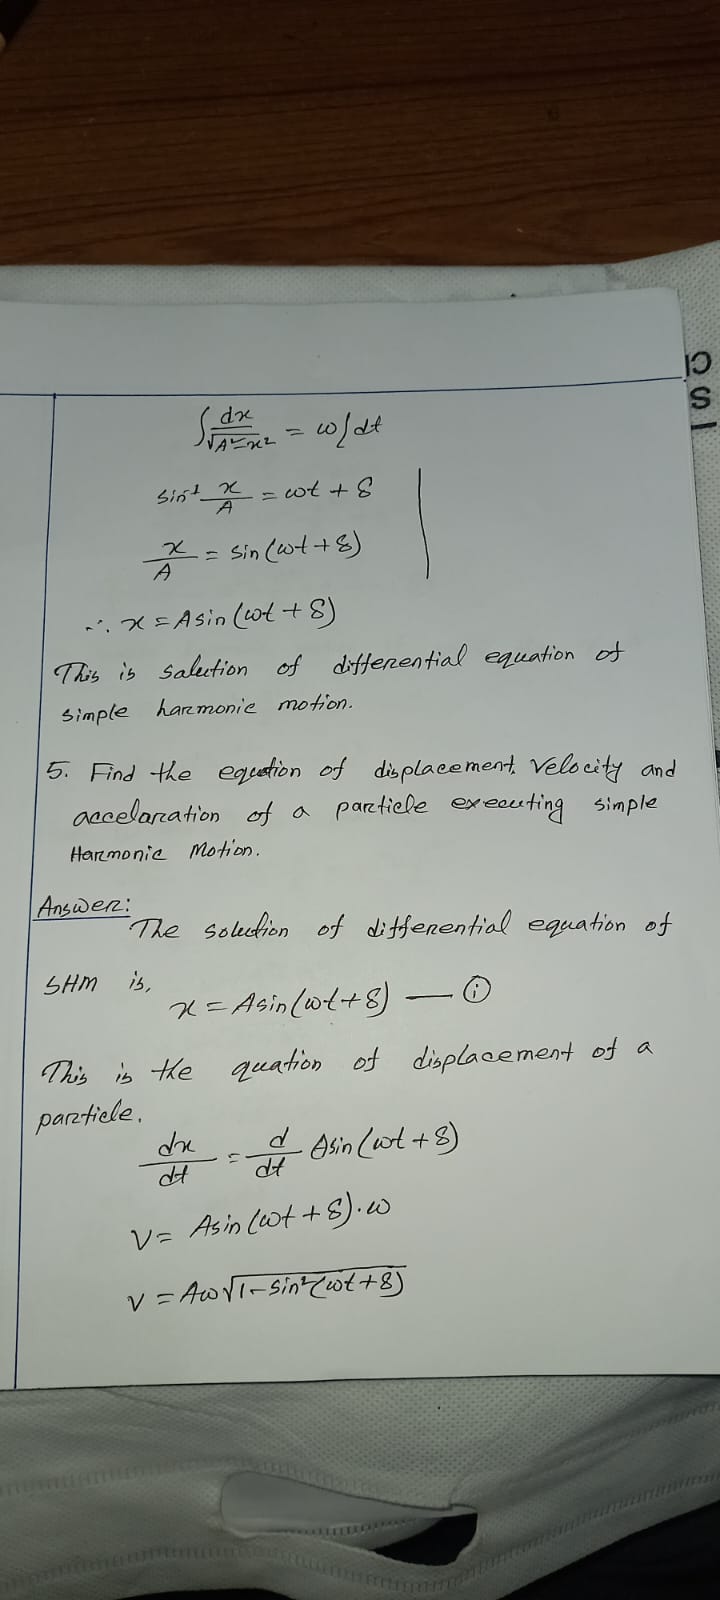 ∫ dx/√(A²-x²) = ω∫dt
sin⁻¹ x/A = ωt + δ
x/A = sin(ωt+δ)
∴ x = Asin(ωt+δ)
This is salution of differential equation of
simple harmonic motion.
5. Find the equation of displacement, velocity and
accelaration of a particle executing simple
Harmonic Motion.
Answer:
The solution of differential equation of
SHM is,
x = Asin(ωt+δ) — ⓘ
This is the quation of displacement of a
particle.
dx/dt = d/dt Asin(ωt+δ)
V = Asin(ωt+δ).ω
v = Aω√(1-sin²(ωt+δ))